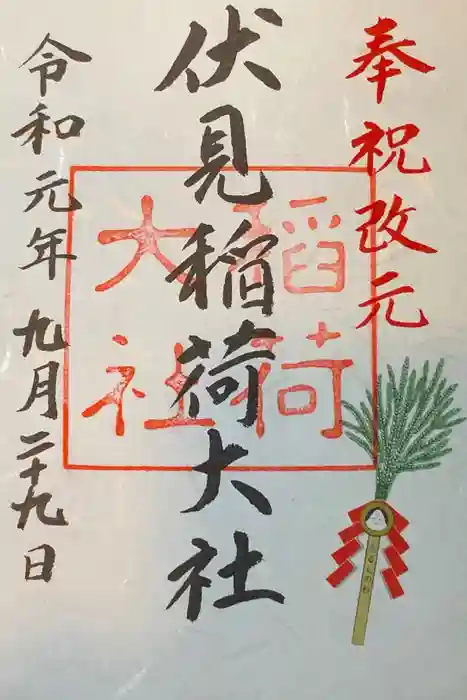 奉祝改元
伏見稲荷大社
稲荷
大社
令和元年九月二十九日